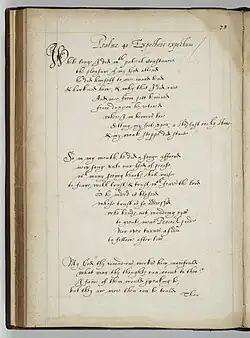 78
Psalme 40 Expectans expectavi
While long I did with patient constancie
the pleasure of my god attend
he did himself to me-ward bend
& hark'ned how, & why that I did crie
And me from pitt bemired
from dungeon he retired
where I in horrors lay
Setting my feet upon a steadfast rocky stone
& my weak stepps did staie
So in my mouth he did a song afford
new song unto our god of praise
which many seeing hearts shall raise
to fear with trust & trust with fear the lord
he indeed is blessed
whose trust is so
who bends not wandring eyes
to great mens Peacock pride
Nor ever turnes aside
to follow after lies
My god thy wondrous works how manifold
what man thy thoughts can count to thee
I fain of them would speaking be
but they are more then can be tould
Thou